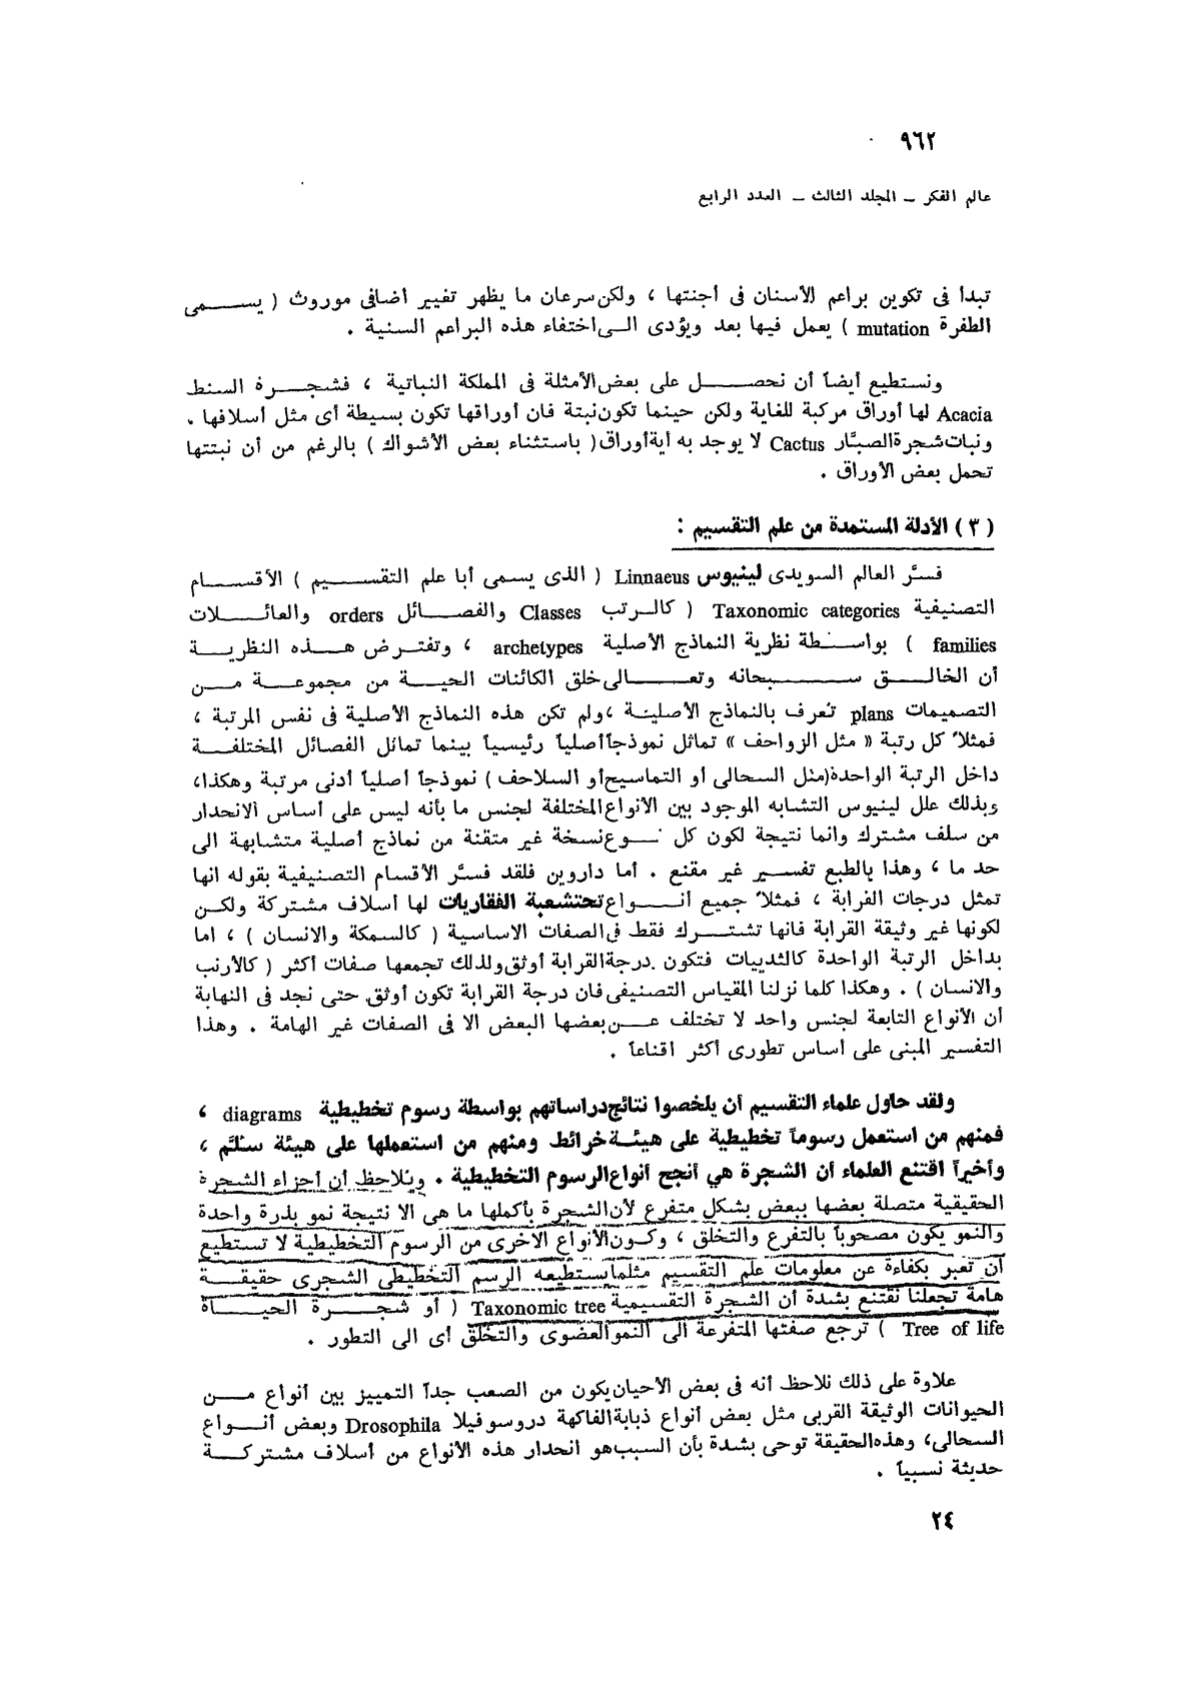 ٩٦٢
عالم الفكر ــ المجلد الثالث ــ العدد الرابع
تبدأ فى تكوين براعم الأسنان فى أجنتها ، ولكن سرعان ما يظهر تغيير أضافى موروث ( يســـمى
الطفرة mutation ) يعمل فيها بعد ويؤدى الــى اختفاء هذه البراعم السنية .
ونستطيع أيضاً أن نحصـــل على بعض الأمثلة فى المملكة النباتية ، فشجـــرة السنط
Acacia لها أوراق مركبة للغاية ولكن حينما تكون نبتة فان أوراقها تكون بسيطة أى مثل أسلافها .
ونبات شجرة الصبَّار Cactus لا يوجد به أية أوراق ( باستثناء بعض الأشواك ) بالرغم من أن نبتتها
تحمل بعض الأوراق .
( ٣ ) الأدلة المستمدة من علم التقسيم :
فسَّر العالم السويدى لينيوس Linnaeus ( الذى يسمى أبا علم التقســـيم ) الأقســـام
التصنيفية Taxonomic categories ( كالـرتب Classes والفصـــائل orders والعائـــلات
families ) بواســـطة نظرية النماذج الأصلية archetypes ، وتفتـرض هـــذه النظريـــة
أن الخالـــق ســـبحانه وتعـــالى خلق الكائنات الحيـــة من مجموعـــة مـــن
التصميمات plans تُعرف بالنماذج الأصلية ، ولم تكن هذه النماذج الأصلية فى نفس المرتبة ،
فمثلاً كل رتبة « مثل الزواحف » تماثل نموذجاً أصلياً رئيسياً بينما تماثل الفصائل المختلفـــة
داخل الرتبة الواحدة (مثل السحالى أو التماسيح أو السلاحف ) نموذجاً أصلياً أدنى مرتبة وهكذا،
وبذلك علل لينيوس التشابه الموجود بين الأنواع المختلفة لجنس ما بأنه ليس على أساس الانحدار
من سلف مشترك وانما نتيجة لكون كل نـــوع نسخة غير متقنة من نماذج أصلية متشابهة الى
حد ما ، وهذا بالطبع تفســـير غير مقنع . أما داروين فلقد فسَّر الأقسام التصنيفية بقوله انها
تمثل درجات القرابة ، فمثلاً جميع أنـــواع تحتشعبة الفقاريات لها أسلاف مشتركة ولكـــن
لكونها غير وثيقة القرابة فانها تشتـــرك فقط فى الصفات الاساسية ( كالسمكة والانسان ) ، اما
بداخل الرتبة الواحدة كالثدييات فتكون درجة القرابة أوثق ولذلك تجمعها صفات أكثر ( كالأرنب
والانسان ) . وهكذا كلما نزلنا المقياس التصنيفى فان درجة القرابة تكون أوثق حتى نجد فى النهاية
أن الأنواع التابعة لجنس واحد لا تختلف عـــن بعضها البعض الا فى الصفات غير الهامة . وهذا
التفسير المبنى على أساس تطورى أكثر اقناعاً .
ولقد حاول علماء التقسيم أن يلخصوا نتائج دراساتهم بواسطة رسوم تخطيطية diagrams ،
فمنهم من استعمل رسوماً تخطيطية على هيئــة خرائط ومنهم من استعملها على هيئة سلَّم ،
وأخيراً اقتنع العلماء أن الشجرة هي أنجح أنواع الرسوم التخطيطية . ويُلاحظ أن أجزاء الشجرة
الحقيقية متصلة بعضها ببعض بشكل متفرع لأن الشجرة بأكملها ما هى الا نتيجة نمو بذرة واحدة
والنمو يكون مصحوباً بالتفرع والتخلق ، وكــون الأنواع الأخرى من الرسوم التخطيطية لا تستطيع
أن تعبر بكفاءة عن معلومات علم التقسيم مثلما يستطيعه الرسم التخطيطى الشجرى حقيقـــة
هامة تجعلنا نقتنع بشدة أن الشجرة التقسيمية Taxonomic tree ( أو شجـــرة الحيـــاة
Tree of life ) ترجع صفتها المتفرعة الى النمو العضوى والتخلق أى الى التطور .
علاوة على ذلك نلاحظ أنه فى بعض الأحيان يكون من الصعب جداً التمييز بين أنواع مـــن
الحيوانات الوثيقة القربى مثل بعض أنواع ذبابة الفاكهة دروسوفيلا Drosophila وبعض أنـــواع
السحالى، وهذه الحقيقة توحى بشدة بأن السبب هو انحدار هذه الأنواع من أسلاف مشتركـــة
حديثة نسبياً .
٢٤